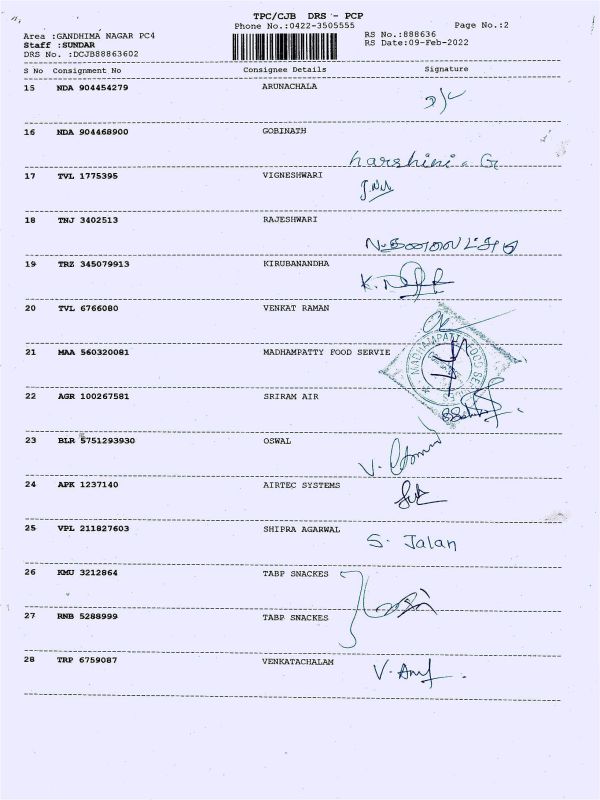 TPC/CJB DRS - PCP
Phone No.:0422-3505555 Page No.:2
Area :GANDHIMA NAGAR PC4 RS No.:888636
Staff :SUNDAR RS Date:09-Feb-2022
DRS No. :DCJB88863602
S No Consignment No Consignee Details Signature
15 NDA 904454279 ARUNACHALA
16 NDA 904468900 GOBINATH
harshini. G
17 TVL 1775395 VIGNESHWARI
18 TNJ 3402513 RAJESHWARI
19 TRZ 345079913 KIRUBANANDHA
20 TVL 6766080 VENKAT RAMAN
21 MAA 560320081 MADHAMPATTY FOOD SERVIE
MADHAMPATTY FOOD SERVICES
22 AGR 100267581 SRIRAM AIR
23 BLR 5751293930 OSWAL
24 APK 1237140 AIRTEC SYSTEMS
25 VPL 211827603 SHIPRA AGARWAL
S. Jalan
26 KMU 3212864 TABP SNACKES
27 RNB 5288999 TABP SNACKES
28 TRP 6759087 VENKATACHALAM